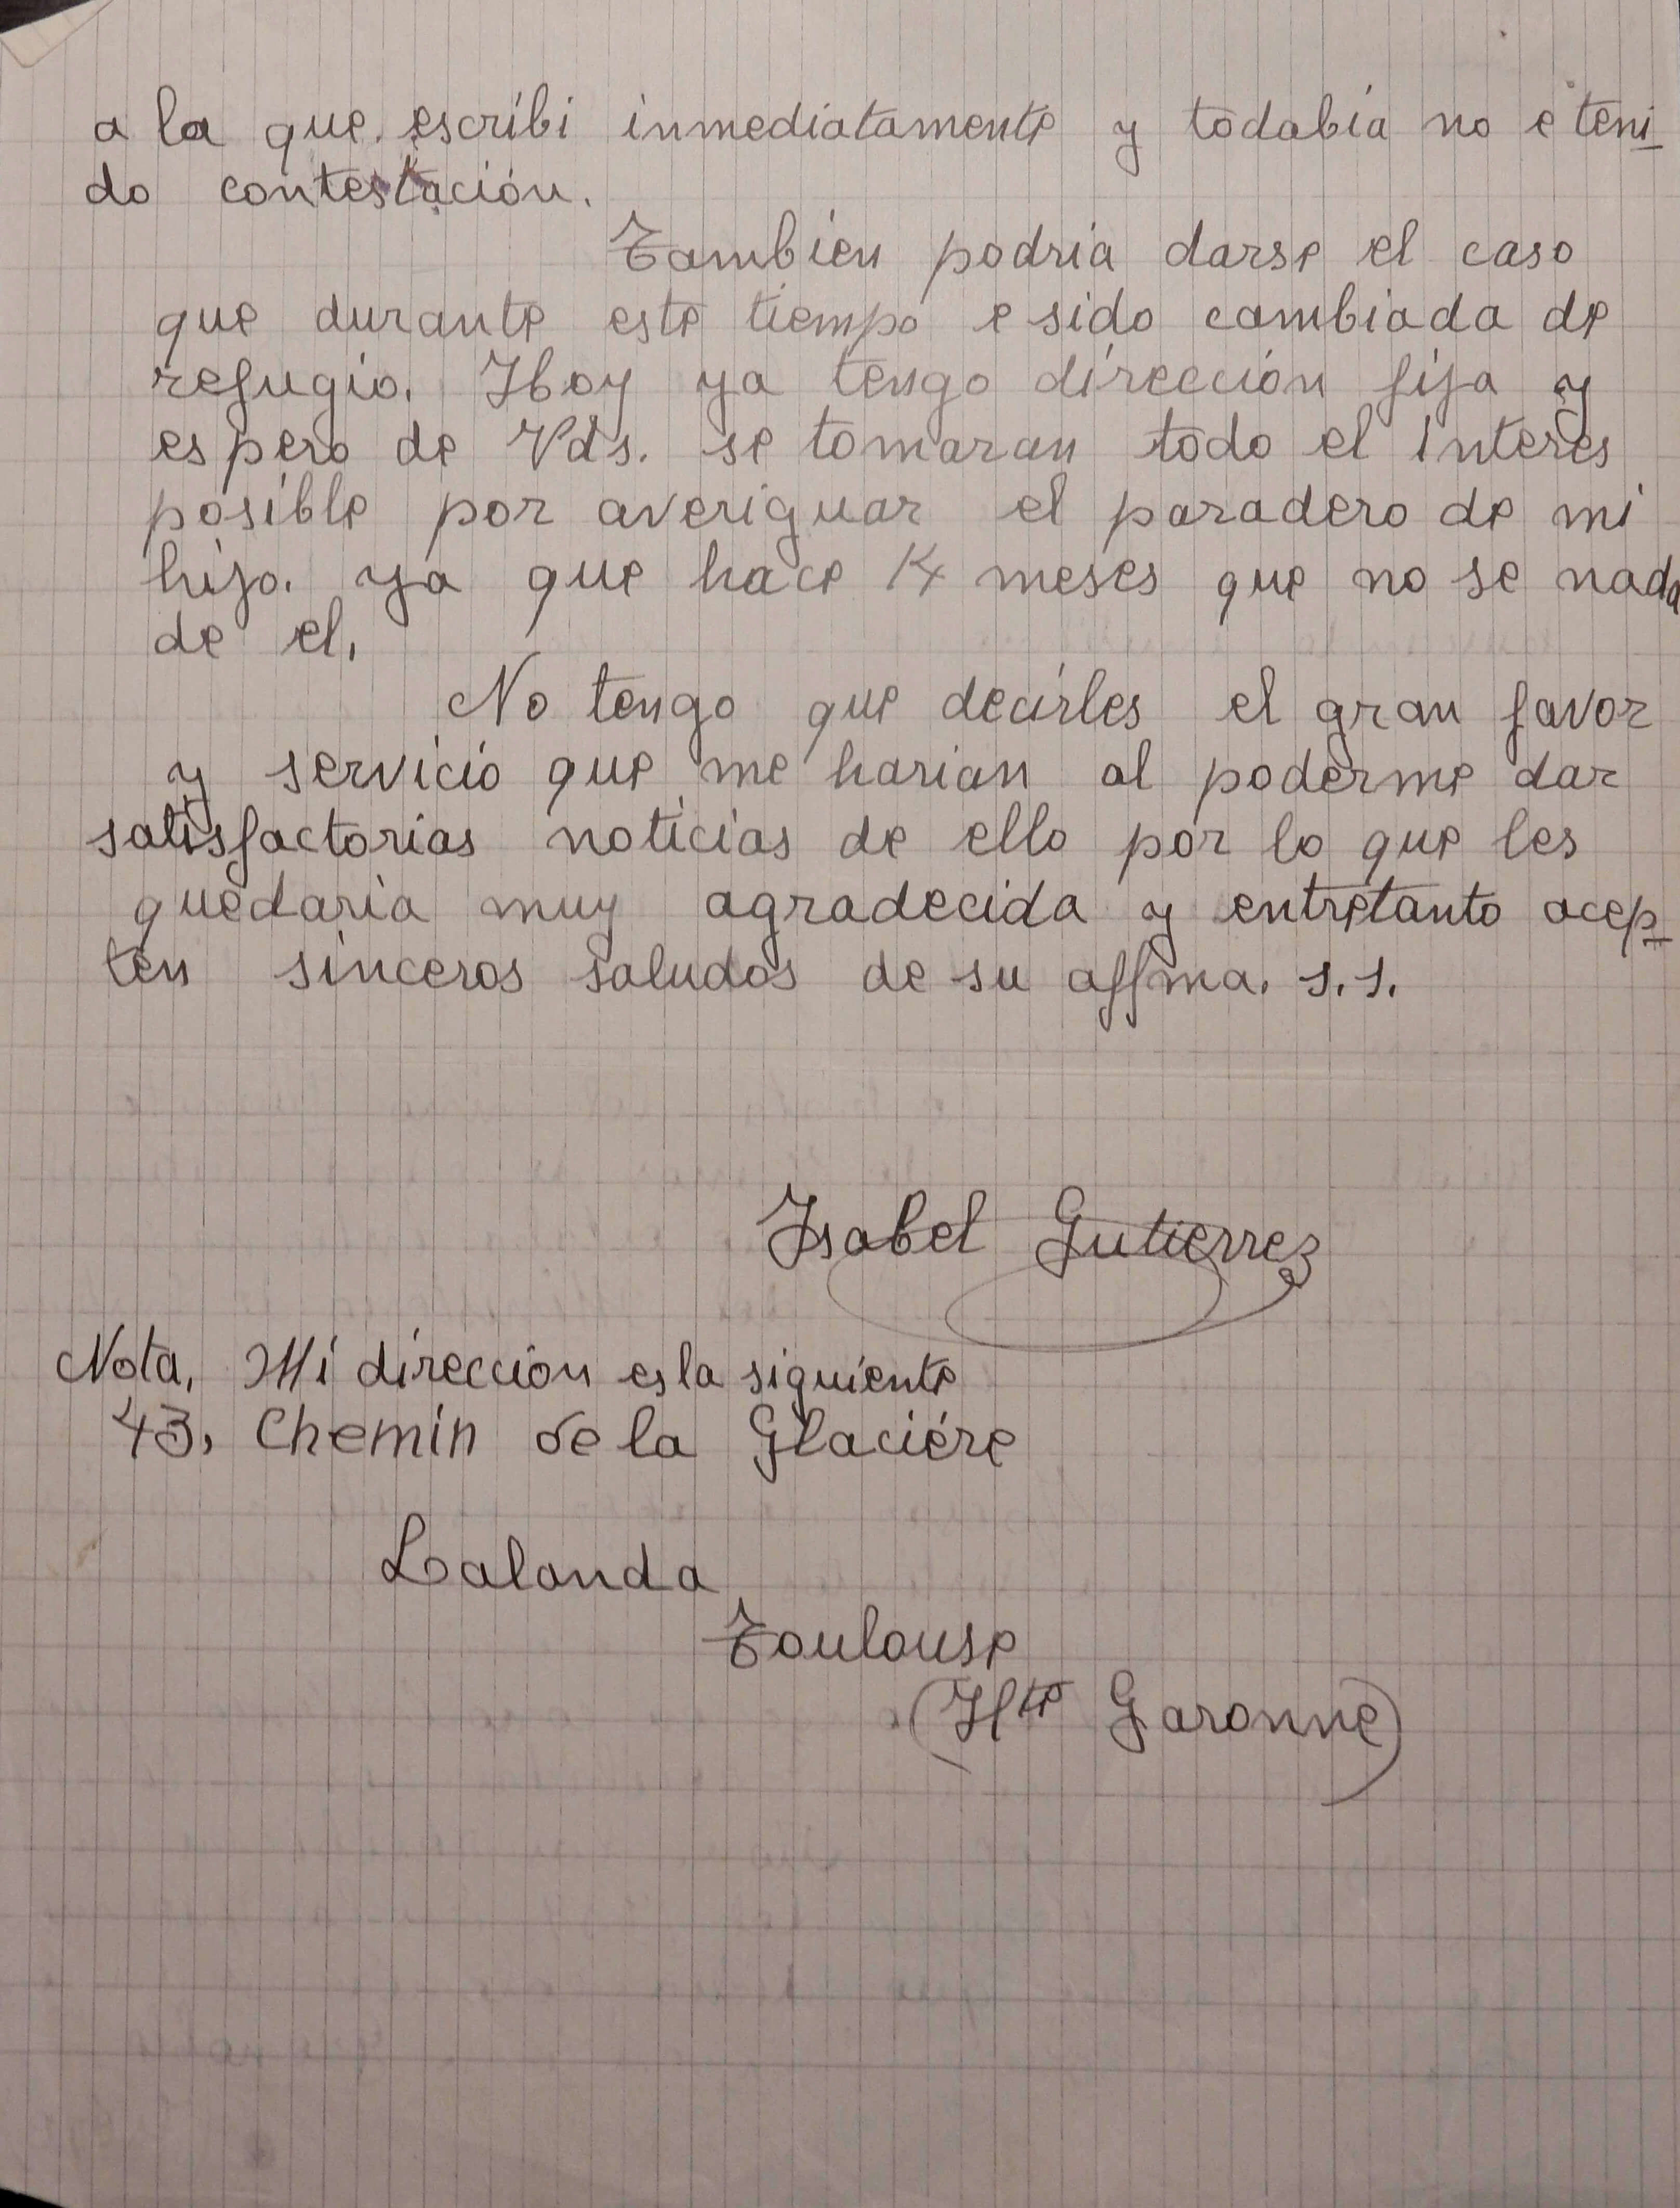 a la que escribi inmediatamente y todabia no e teni
do contestación.
Tambien podria darse el caso
que durante este tiempo e sido cambiada de
refugio. Hoy ya tengo dirección fija y
espero de Vds. se tomaran todo el interes
posible por averiguar el paradero de mi
hijo. ya que hace 14 meses que no se nada
de el.
No tengo que decirles el gran favor
y servicio que me harian al poderme dar
satisfactorias noticias de ello por lo que les
quedaria muy agradecida y entretanto acep
ten sinceros saludos de su affma. s.s.
Isabel Gutierrez
Nota, Mi dirección es la siguiente
43, Chemin de la Glaciére
Lalanda
Toulouse
(Hte Garonne)